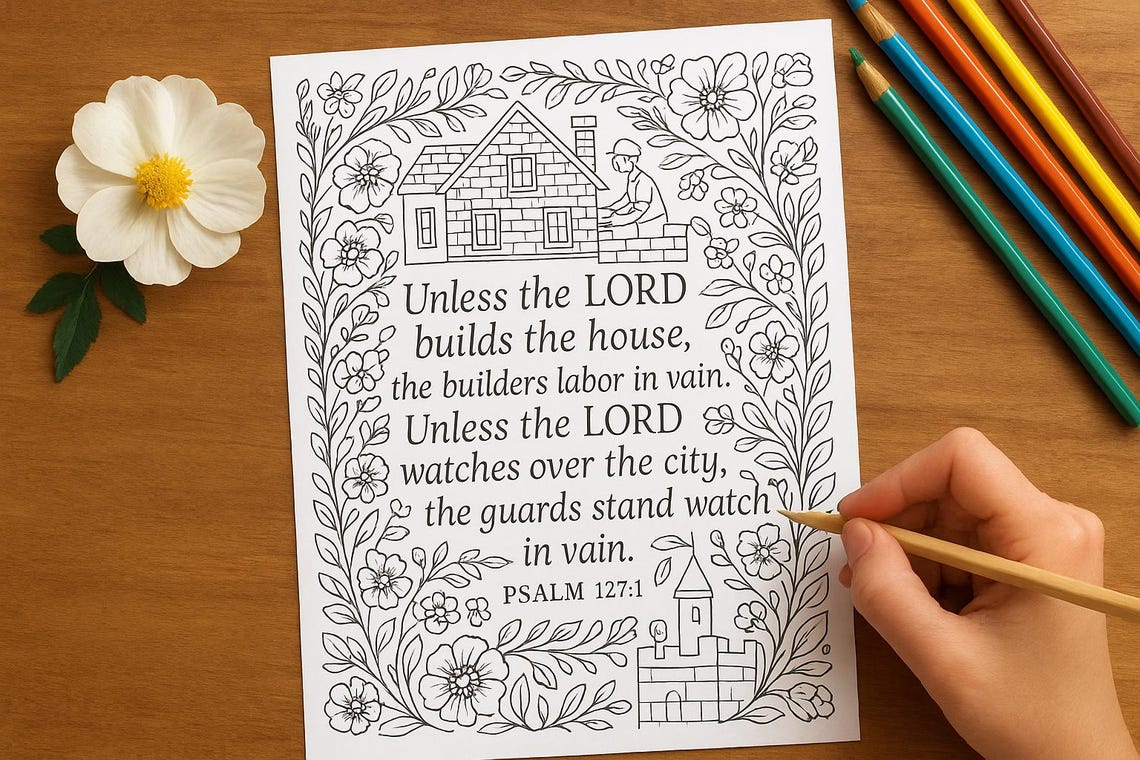 Unless the LORD
builds the house,
the builders labor in vain.
Unless the LORD
watches over the city,
the guards stand watch
in vain.
PSALM 127:1